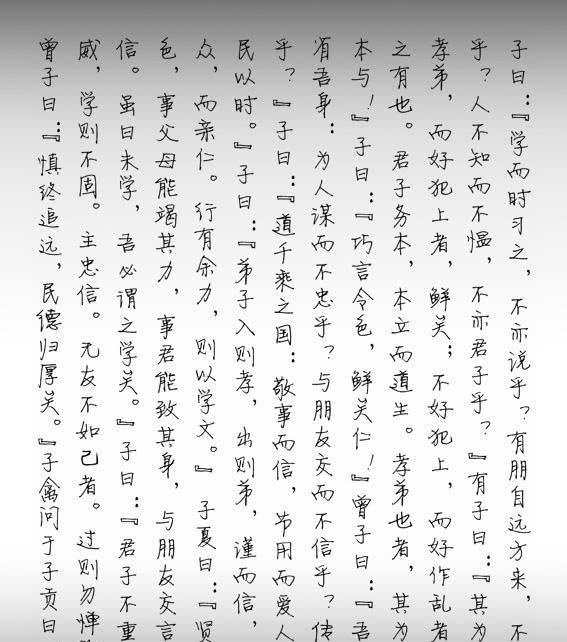 子曰：『学而时习之，不亦说乎？有朋自远方来，不
乎？人不知而不愠，不亦君子乎？』有子曰：『其为
孝弟，而好犯上者，鲜矣；不好犯上，而好作乱者
之有也。君子务本，本立而道生。孝弟也者，其为
本与！』子曰：『巧言令色，鲜矣仁！』曾子曰：『吾
省吾身：为人谋而不忠乎？与朋友交而不信乎？传
乎？』子曰：『道千乘之国：敬事而信，节用而爱人
民以时。』子曰：『弟子入则孝，出则弟，谨而信，
众，而亲仁。行有余力，则以学文。』子夏曰：『贤
色，事父母能竭其力，事君能致其身，与朋友交言
信。虽曰未学，吾必谓之学矣。』子曰：『君子不重
威，学则不固。主忠信。无友不如己者。过则勿惮
曾子曰：『慎终追远，民德归厚矣。』子禽问于子贡曰